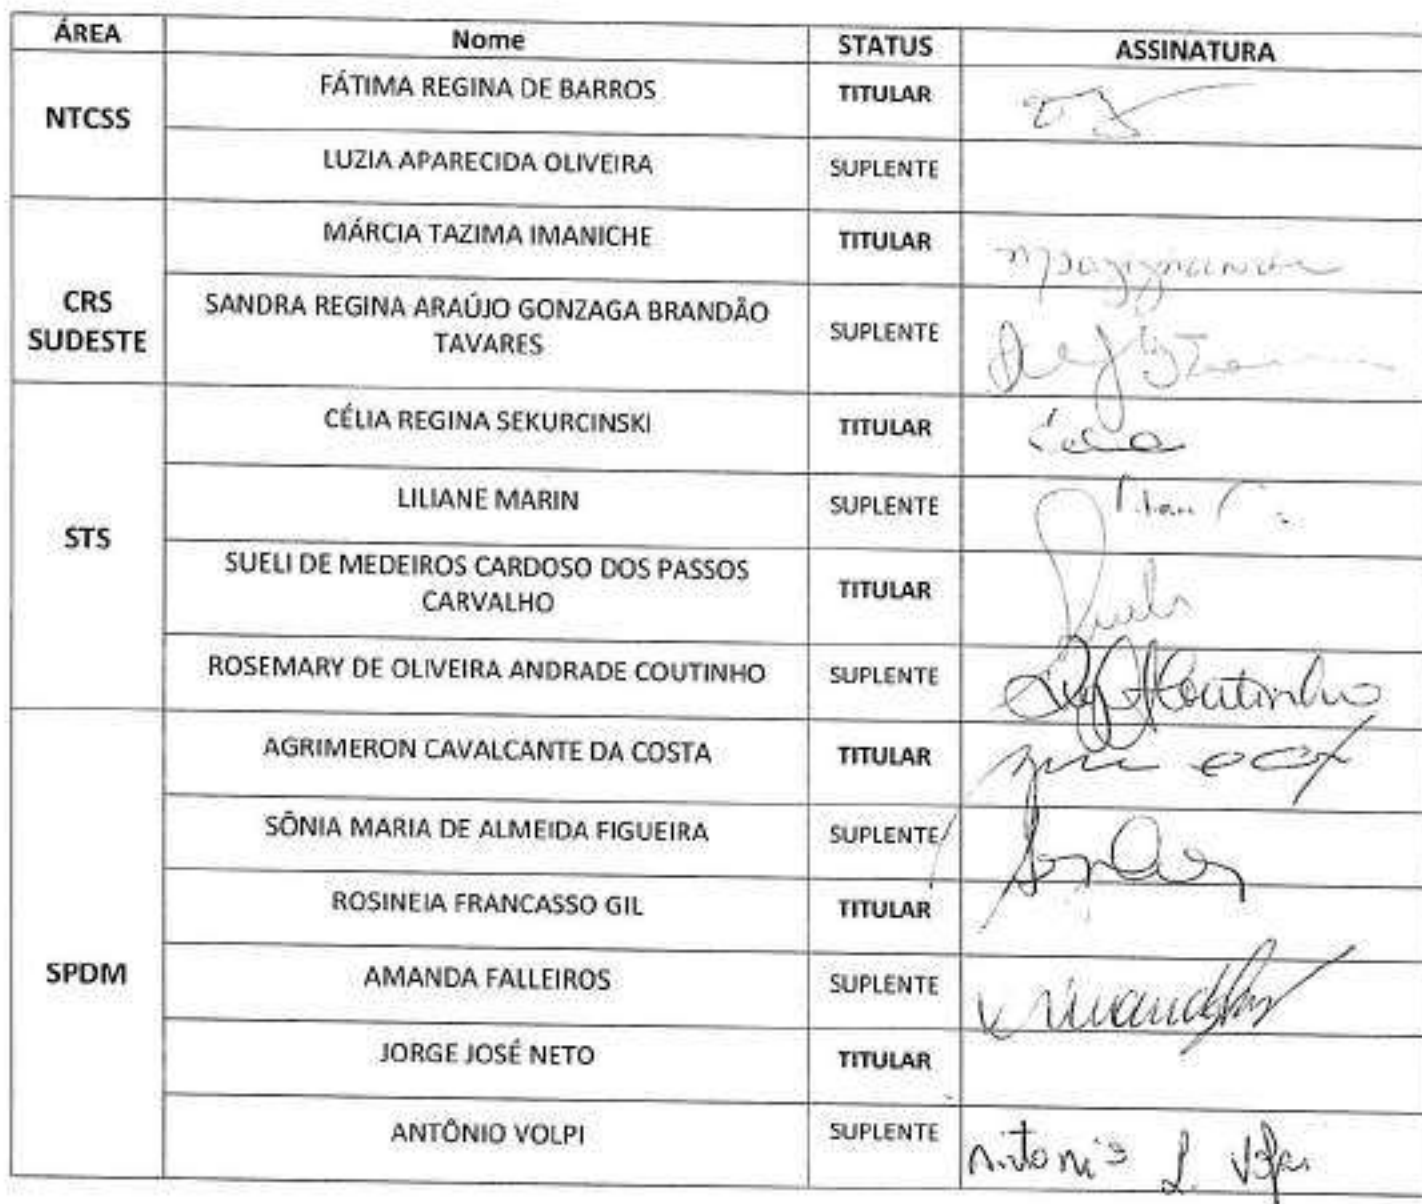 ÁREA Nome STATUS ASSINATURA
NTCSS
FÁTIMA REGINA DE BARROS TITULAR
LUZIA APARECIDA OLIVEIRA SUPLENTE
CRS
SUDESTE
MÁRCIA TAZIMA IMANICHE TITULAR
SANDRA REGINA ARAÚJO GONZAGA BRANDÃO
TAVARES
SUPLENTE
STS
CÉLIA REGINA SEKURCINSKI TITULAR
LILIANE MARIN SUPLENTE
SUELI DE MEDEIROS CARDOSO DOS PASSOS
CARVALHO
TITULAR Sueli
ROSEMARY DE OLIVEIRA ANDRADE COUTINHO SUPLENTE Coutinho
SPDM
AGRIMERON CAVALCANTE DA COSTA TITULAR
SÔNIA MARIA DE ALMEIDA FIGUEIRA SUPLENTE
ROSINEIA FRANCASSO GIL TITULAR
AMANDA FALLEIROS SUPLENTE
JORGE JOSÉ NETO TITULAR
ANTÔNIO VOLPI SUPLENTE Antonio L. Volpi